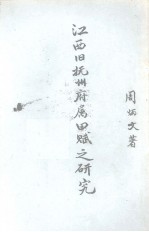 江西旧抚州府属田赋之研究
周炳文著